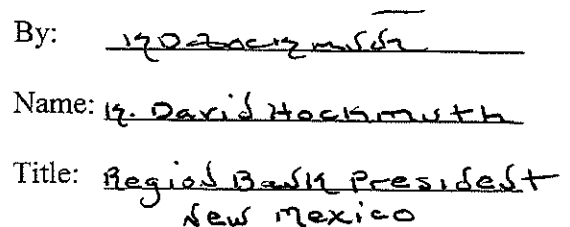 By: KDHockmuth
Name: K. David Hockmuth
Title: Region Bank President
New Mexico